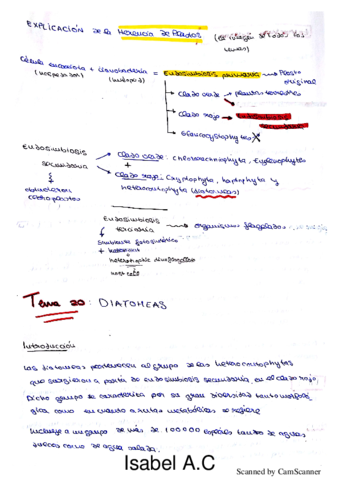 EXPLICACIÓN de la Herencia de Plastos (el origen de todos los
Célula eucariota + cianobacteria = Endosimbiosis primaria → Plasto
(hospedador) (huésped) original
Clado verde → plantas terrestres
Clado rojo → Endosimbiosis
secundaria
Glaucocystophytes X
Endosimbiosis
secundaria
Clado verde: Chlorarachniophyta, Euglenophytes
+
Clado rojo: Cryptophyta, haptophyta y
heterocontophyta (diatomeas)
obtuvieron
cloroplastos
Endosimbiosis
terciaria → organismos flagelados
simbionte fotosintético
+ heterocont
heterotrophic dinoflagellate
host cell
Tema 20: DIATOMEAS
Introducción
Las diatomeas pertenecen al grupo de las heterocontophytas
que surgieron a partir de endosimbiosis secundaria, en el clado rojo.
Dicho grupo se caracteriza por su gran diversidad tanto morfoló-
gica como en cuanto a rutas metabólicas se refiere
Incluye a un grupo de más de 100000 especies tanto de aguas
dulces como de agua salada.
Isabel A.C
Scanned by CamScanner